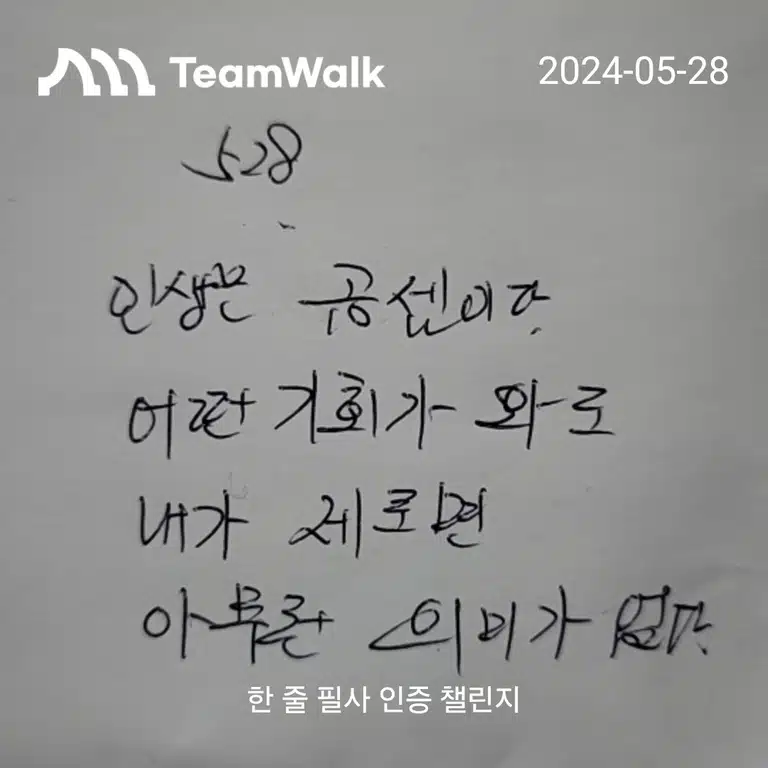 TeamWalk
2024-05-28
528
인생은 곱셈이다.
어떤 기회가 와도
내가 제로면
아무런 의미가 없다.
한 줄 필사 인증 챌린지